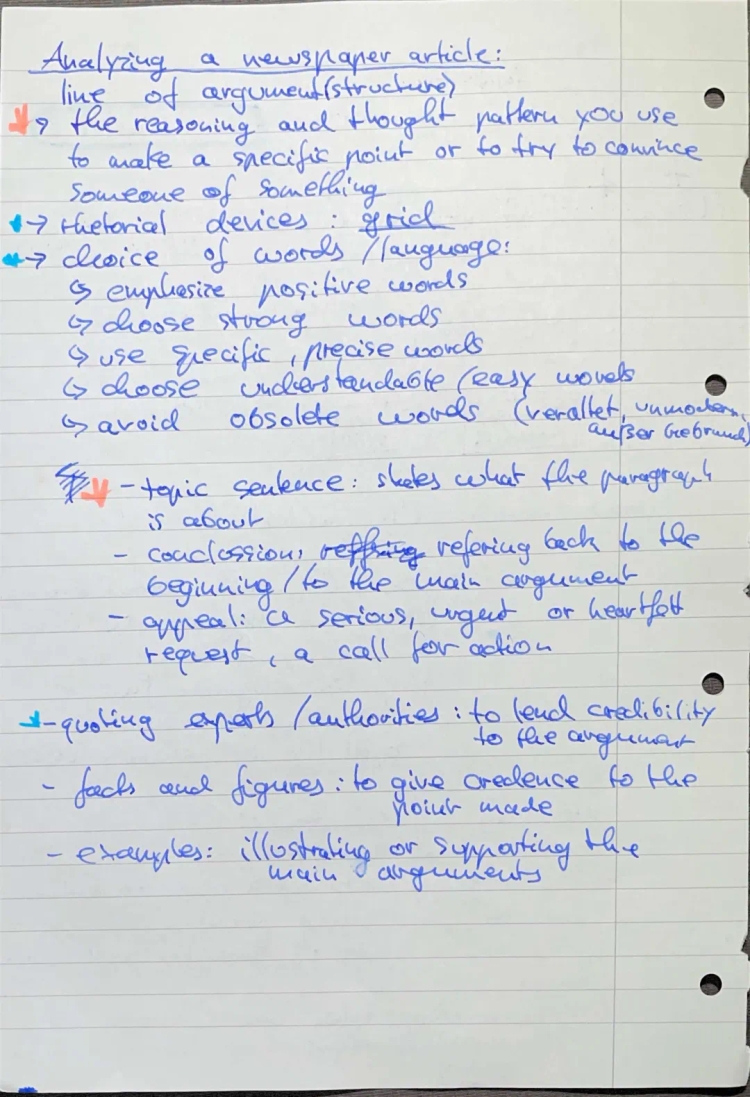 Analyzing a newspaper article:
line of argument (structure)
↳ the reasoning and thought pattern you use
to make a specific point or to try to convince
someone of something
→ rhetorial devices: grid
→ choice of words / language:
↳ emphasize positive words
↳ choose strong words
↳ use specific, precise words
↳ choose understandable / easy words
↳ avoid obsolete words (veraltet, unmodern,
außer Gebrauch)
- topic sentence: states what the paragraph
is about
- conclossion, refering back to the
beginning / to the main argument
- appeal: a serious, urgent or heartfelt
request, a call for action
- quoting experts / authorities: to lend credibility
to the argument
- facts and figures: to give credence to the
point made
- examples: illustrating or supporting the
main arguments